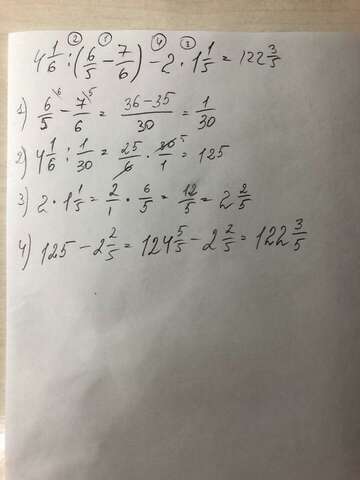 ② ① ④ ③
4 1/6 : (6/5 − 7/6) − 2 · 1 1/5 = 122 3/5
1) 6/5 \6 − 7/6 \5 = 36−35/30 = 1/30
2) 4 1/6 : 1/30 = 25/6 · 30/1 5 = 125
3) 2 · 1 1/5 = 2/1 · 6/5 = 12/5 = 2 2/5
4) 125 − 2 2/5 = 124 5/5 − 2 2/5 = 122 3/5